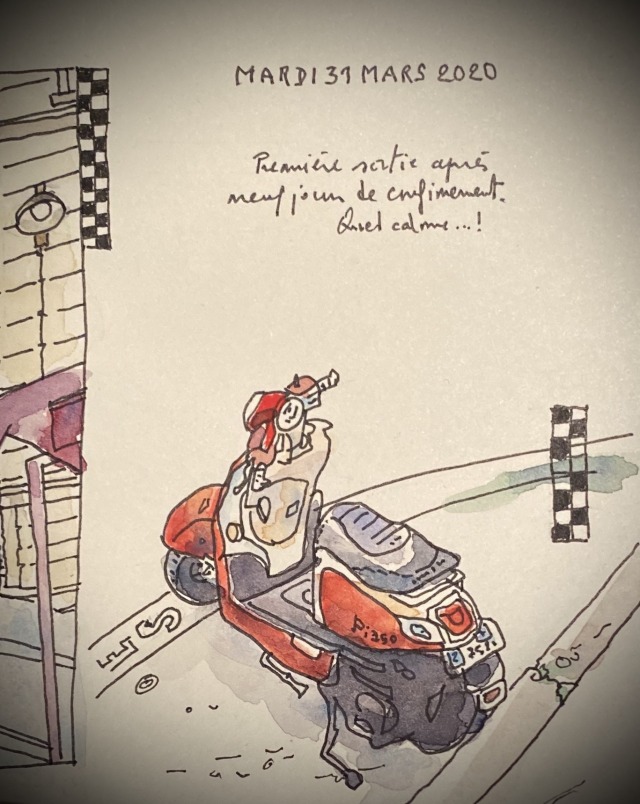 MARDI 31 MARS 2020
Première sortie après
neuf jours de confinement.
Quel calme...!